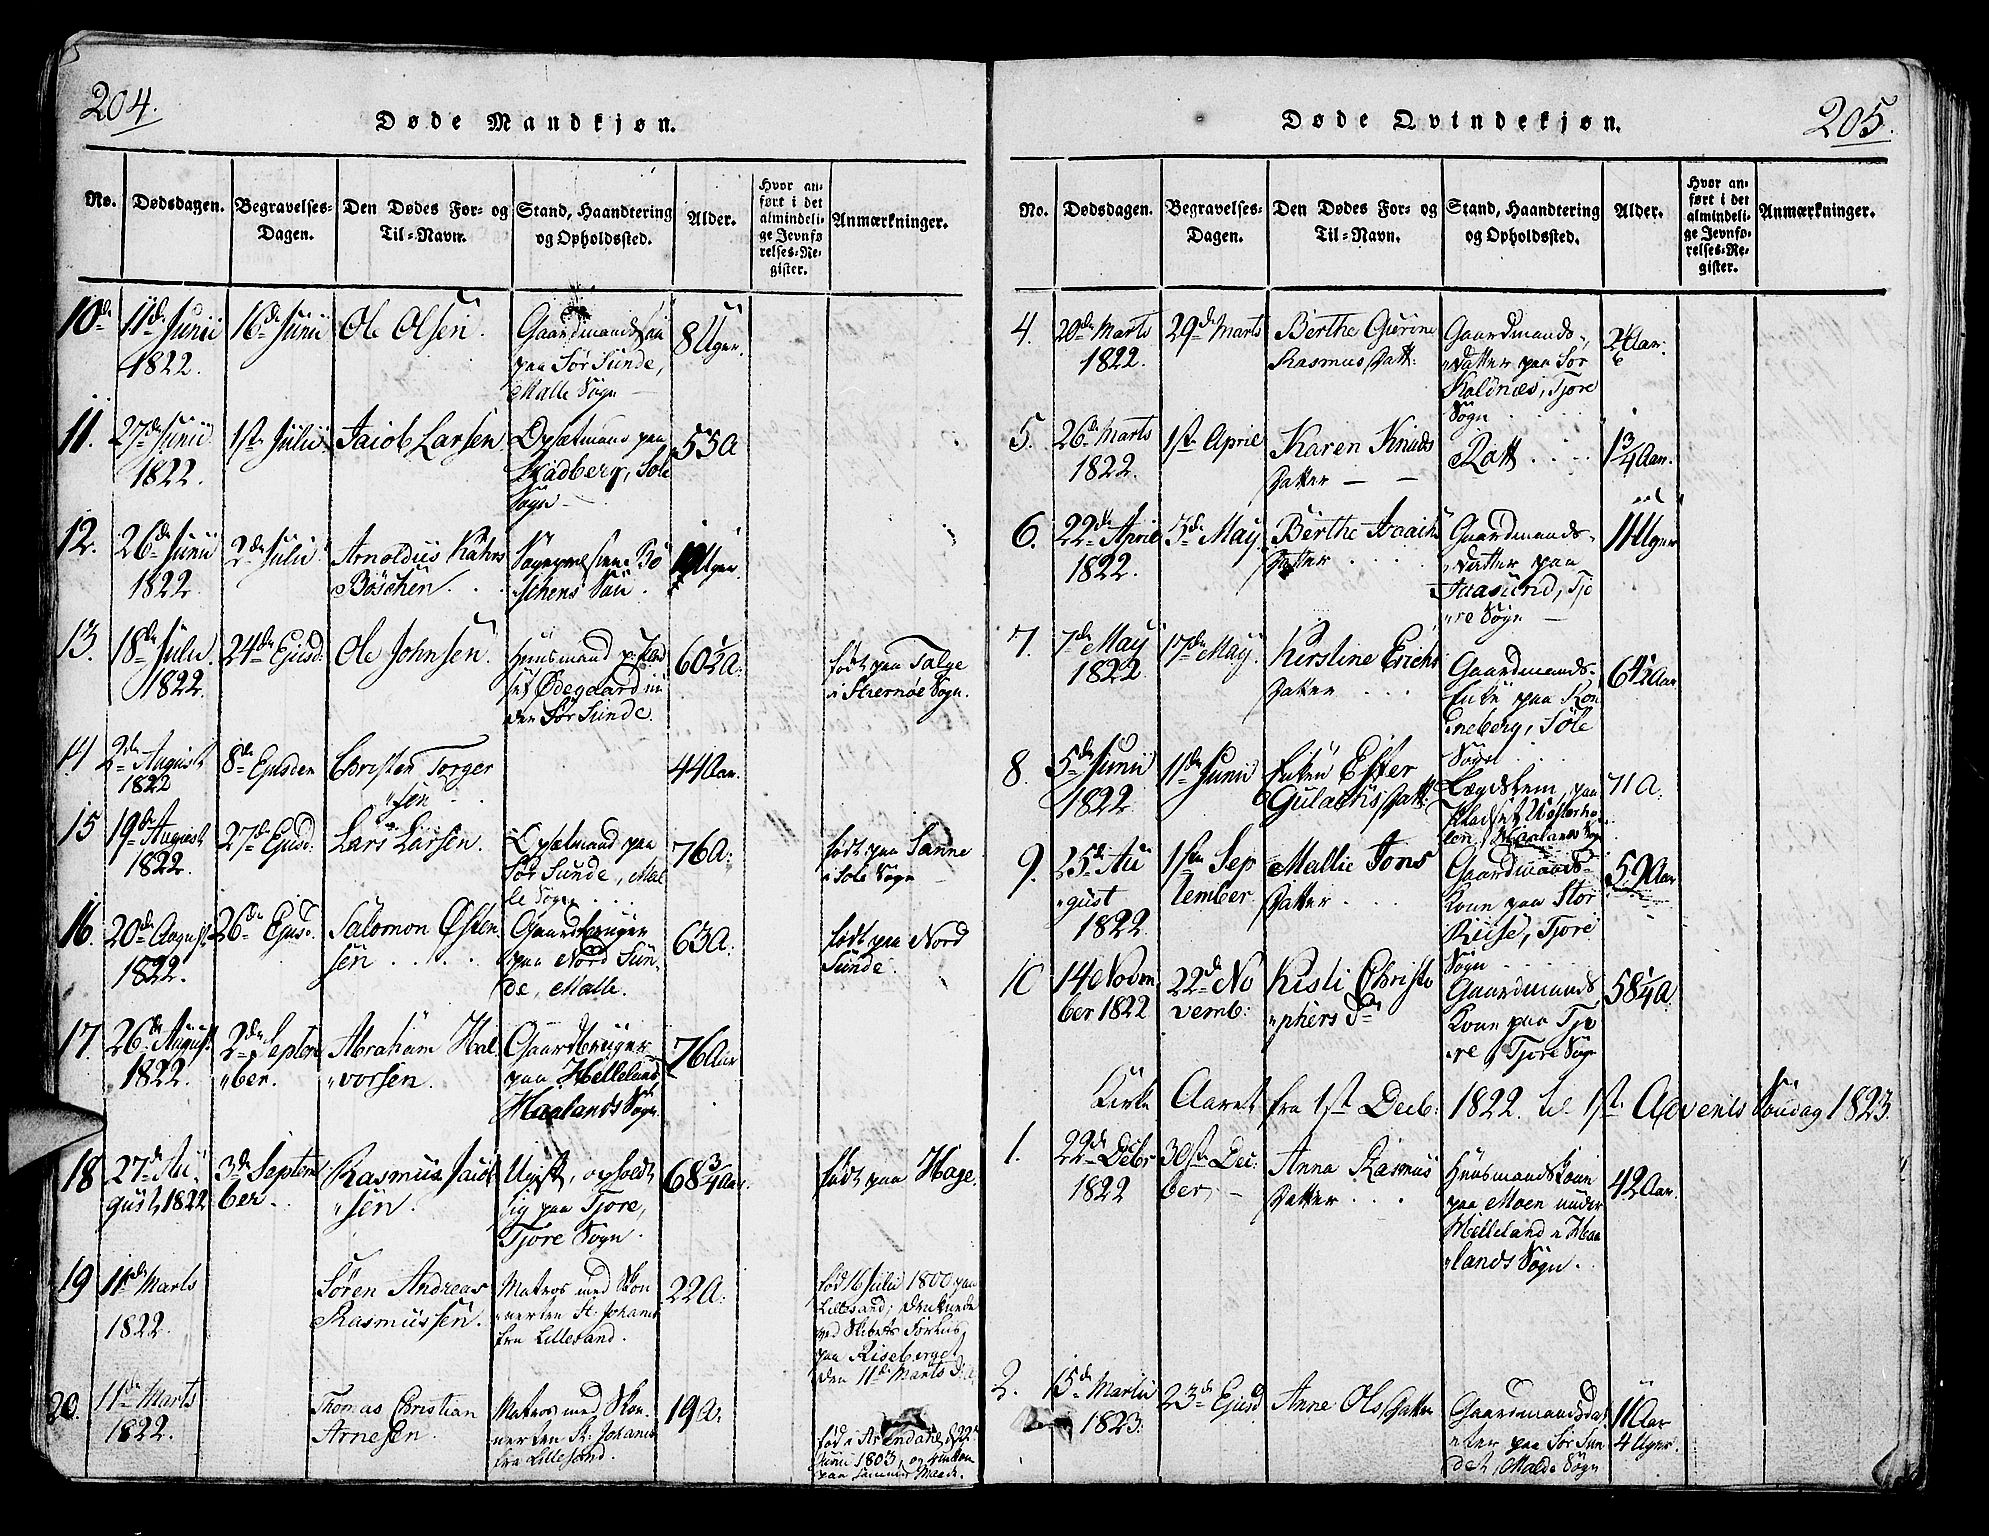 204.
Døde Mandkjøn.
No.
Dødsdagen.
Begravelses-
Dagen.
Den Dødes For- og
Til-Navn.
Stand, Haandtering
og Opholdssted.
Alder.
Hvor an-
ført i det
almindeli-
ge Jevnfø-
relses-Re-
gister.
Anmærkninger.
10de
11de Junii
1822.
16de Junii
Ole Olsen.
Gaardmands Søn
paa Sør Sunde,
Malle Sogn
8 Uger.
11.
27de Junii
1822.
1ste Julii
Jacob Larsen
paa
Skadberg, Sole
Sogn
55 A
12.
26de Junii
1822.
2de Julii
Arnoldus Kahrs
Böschen.
Bö
schens Søn.
Uger.
13.
18de Julii
1822.
24de Ejusd:
Ole Johnsen.
Huusmand
Ødegaard un
der Sør Sunde.
60½ A:
født paa Talge
i Stiernøe Sogn.
14
2de August
1822
8de Ejusdem
Christen Torger
sen
44 Aar.
15
19de August
1822.
27de Ejusd:
Lars Larsen.
paa
Sør Sunde, Mal
le Sogn
76 A:
født paa Sanne
i Sole Sogn
16.
20de August
1822.
26de Ejusd.
Salomon Østen
sen
Gaardbruger
paa Nord Sun-
de, Malle.
63 A:
født paa Nord
Sunde.
17.
26de August
1822.
2den Septem
ber.
Abraham Hal
vorsen.
Gaardbruger
paa Helleland
Haalands Sogn.
76 Aar
18
27de Au
gust 1822
3de Septem
ber.
Rasmus
sen.
Ugift,
sig paa Tjore,
Tjore Sogn.
68¾ Aar.
født paa Hage.
19
11de Marts
1822.
Søren Andreas
Rasmussen.
Matros med Skon
nerten St: Johannes
fra Lillesand.
22 A:
født 16 Julii 1800 paa
Lillesand; druknede
ved Skibets Forliis
paa Riseberget
den 11de Marts
20.
11de Marts
1822.
Thomas Christian
Arnesen.
Matros med Skon
nerten St: Johannes
fra Lillesand.
19 A:
født i Arendahl, d 22
Junii 1803, og
paa samme Maade.
205.
Døde Qvindekjøn.
No.
Dødsdagen.
Begravelses-
Dagen.
Den Dødes For- og
Til-Navn.
Stand, Haandtering
og Opholdssted.
Alder.
Hvor an-
ført i det
almindeli-
ge Jevnfø-
relses-Re-
gister.
Anmærkninger.
4.
20de Marts
1822.
29de Marts
Berthe Gurine
Rasmus Datt:
Gaardmands-
datter paa Sør
Koldnæs, Tjore
Sogn
Aar.
5.
26de Marts
1822.
1ste April
Karen Knuds
Datter
Rott
1¾ Aar.
6.
22de April
1822.
3de May.
Berthe Isachs
Datter
Gaardmands-
datter paa
Jaasund, Tjo
re Sogn
11 Uger
7.
7de May
1822
17de May.
Kirstine Erichs
Datter
Gaardmands-
Enke paa Kon
neberg, Sole
Sogn
64½ Aar
8.
5de Junii
1822.
11de Junii
Enken Ester
Gulachs Datt:
Lægdslem paa
Haalands Sogn
71 A:
9.
25de Au
gust
1822.
1ste Sep
tember
Mallie Jons
Datter
Gaardmands-
Kone paa Stor
Riise, Tjore
Sogn
59 Aar
10
14 Novem
ber 1822
22de No
vemb:
Kisti Christo
phers D:
Gaardmands
Kone paa Tjo
re, Tjore Sogn
58¼ A.
Kirke Aaret fra 1ste Decb: 1822 til 1ste Advents Søndag 1823.
1.
22de Decbr
1822
30ste Dec:
ber
Anna Rasmus
Datter
Huusmandskone
paa Moen under
Helleland i Haa
lands Sogn.
42 Aar.
2.
15de Martii
1823.
23de Ejusd
Anne Ols Datter
Gaardmandsdat
ter paa Sør Sun
det, Malde Sogn
11 Aar
4 Uger.